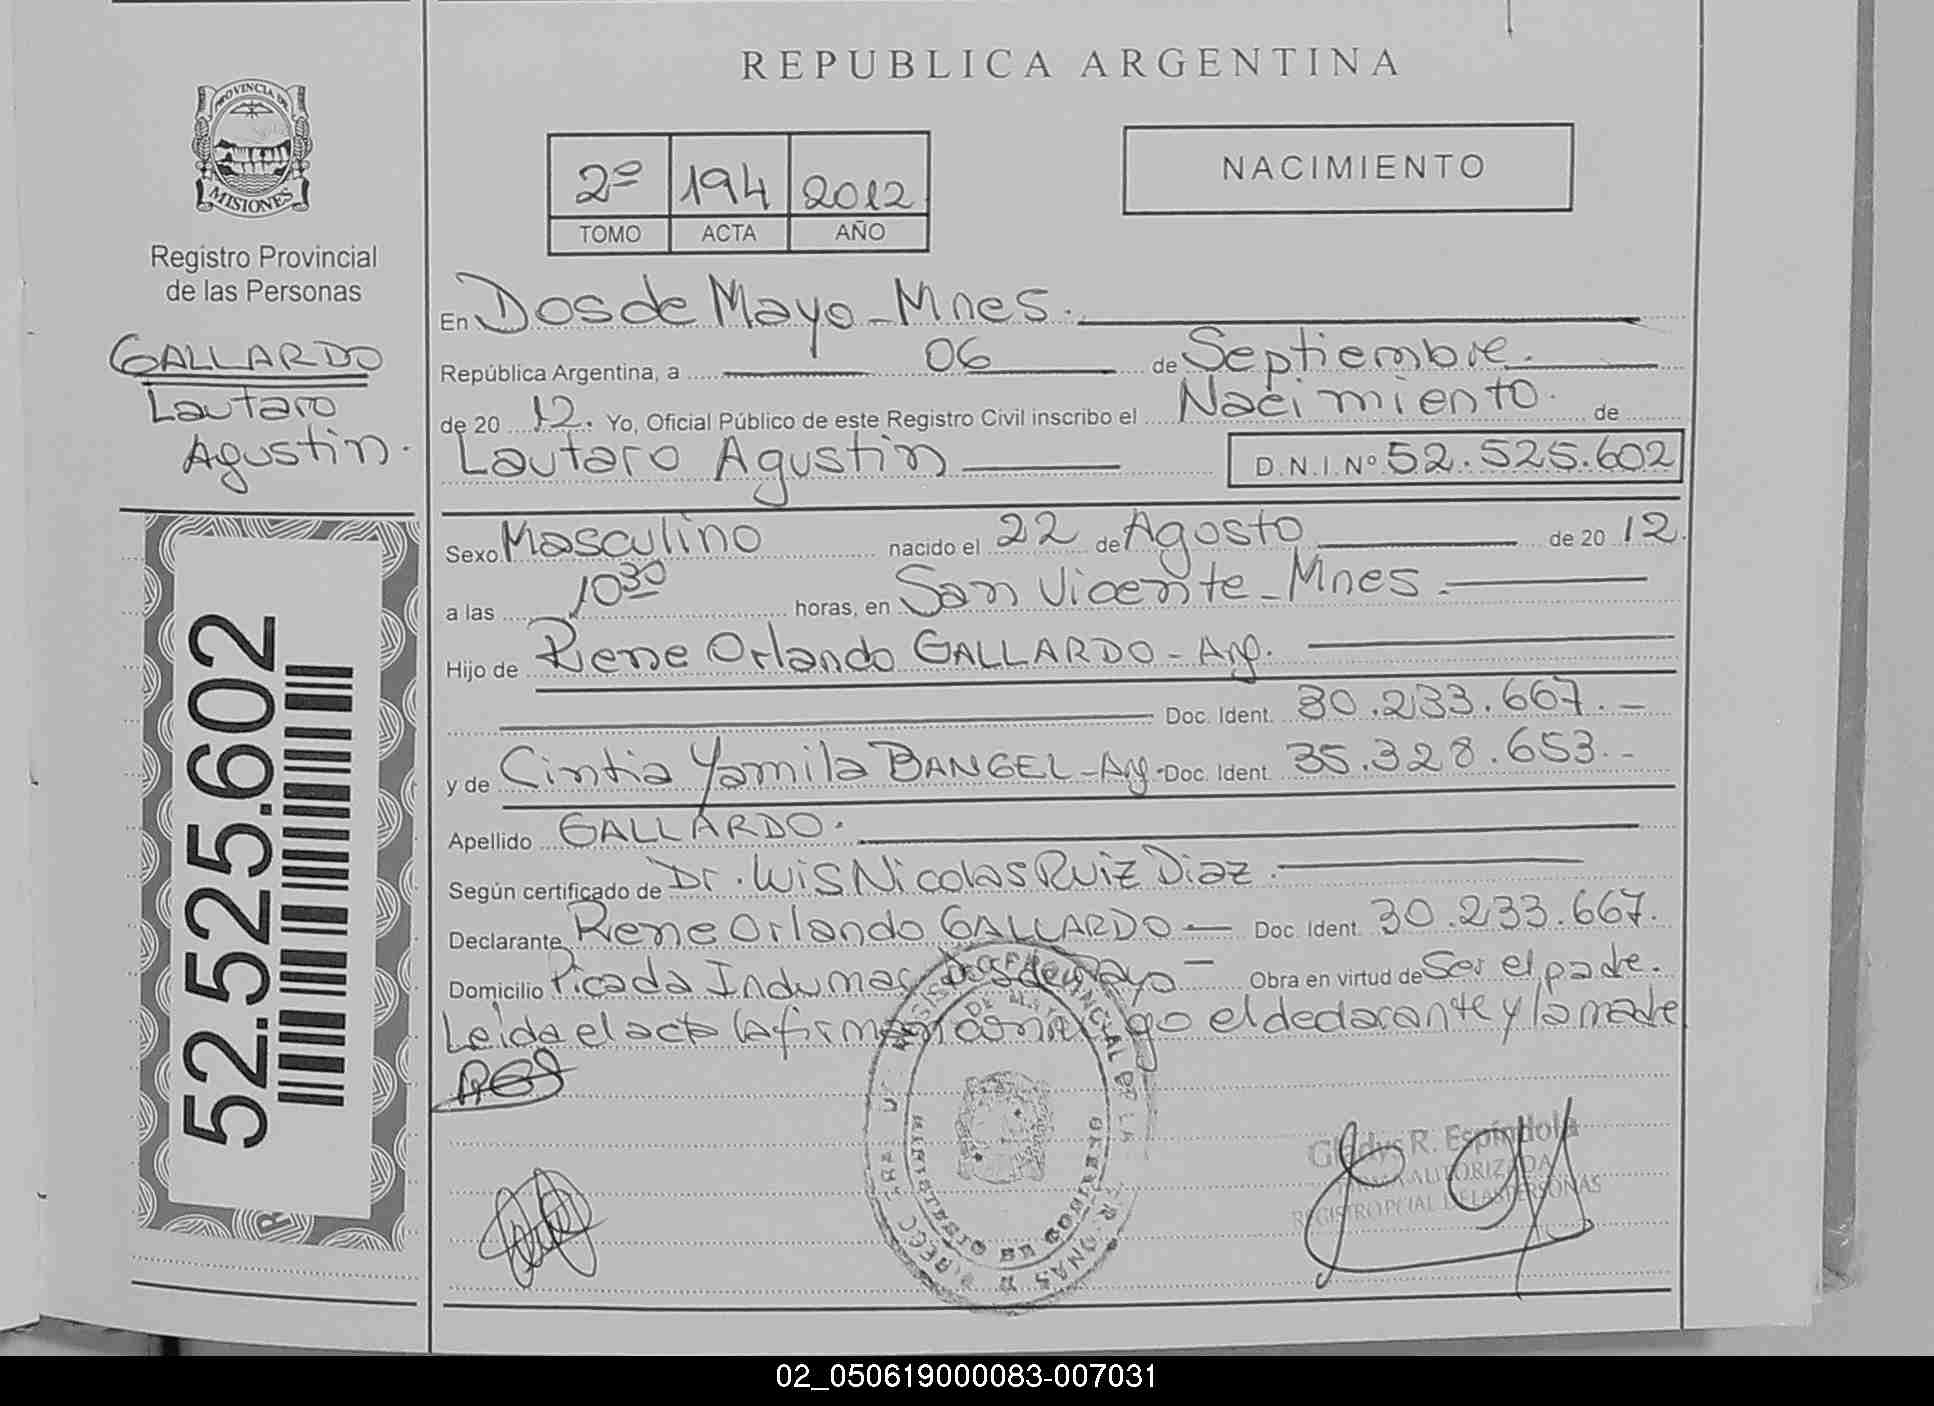 REPUBLICA ARGENTINA
PROVINCIA DE
MISIONES
Registro Provincial
de las Personas
GALLARDO
Lautaro
Agustin.
52.525.602
2º 194 2012
TOMO ACTA AÑO
NACIMIENTO
En Dos de Mayo - Mnes.
República Argentina, a 06 de Septiembre.
de 20 12. Yo, Oficial Público de este Registro Civil inscribo el Nacimiento. de
Lautaro Agustin D.N.I. Nº 52.525.602
Sexo Masculino nacido el 22 de Agosto de 20 12.
a las 10 30 horas, en San Vicente - Mnes.
Hijo de Rene Orlando GALLARDO - Arg.
Doc. Ident. 30.233.667.-
y de Cintia Yamila BANGEL - Arg. Doc. Ident. 35.328.653.-
Apellido GALLARDO.
Según certificado de Dr. Luis Nicolas Ruiz Diaz.
Declarante Rene Orlando GALLARDO - Doc. Ident. 30.233.667.
Domicilio Picada Indumar, Dos de Mayo - Obra en virtud de Ser el padre.
Leida el acta la firman conmigo el declarante y la madre
MINISTERIO DE GOBIERNO
Gladys R. Espíndola
AUTORIZADA
REGISTRO PCIAL DE LAS PERSONAS
02_050619000083-007031